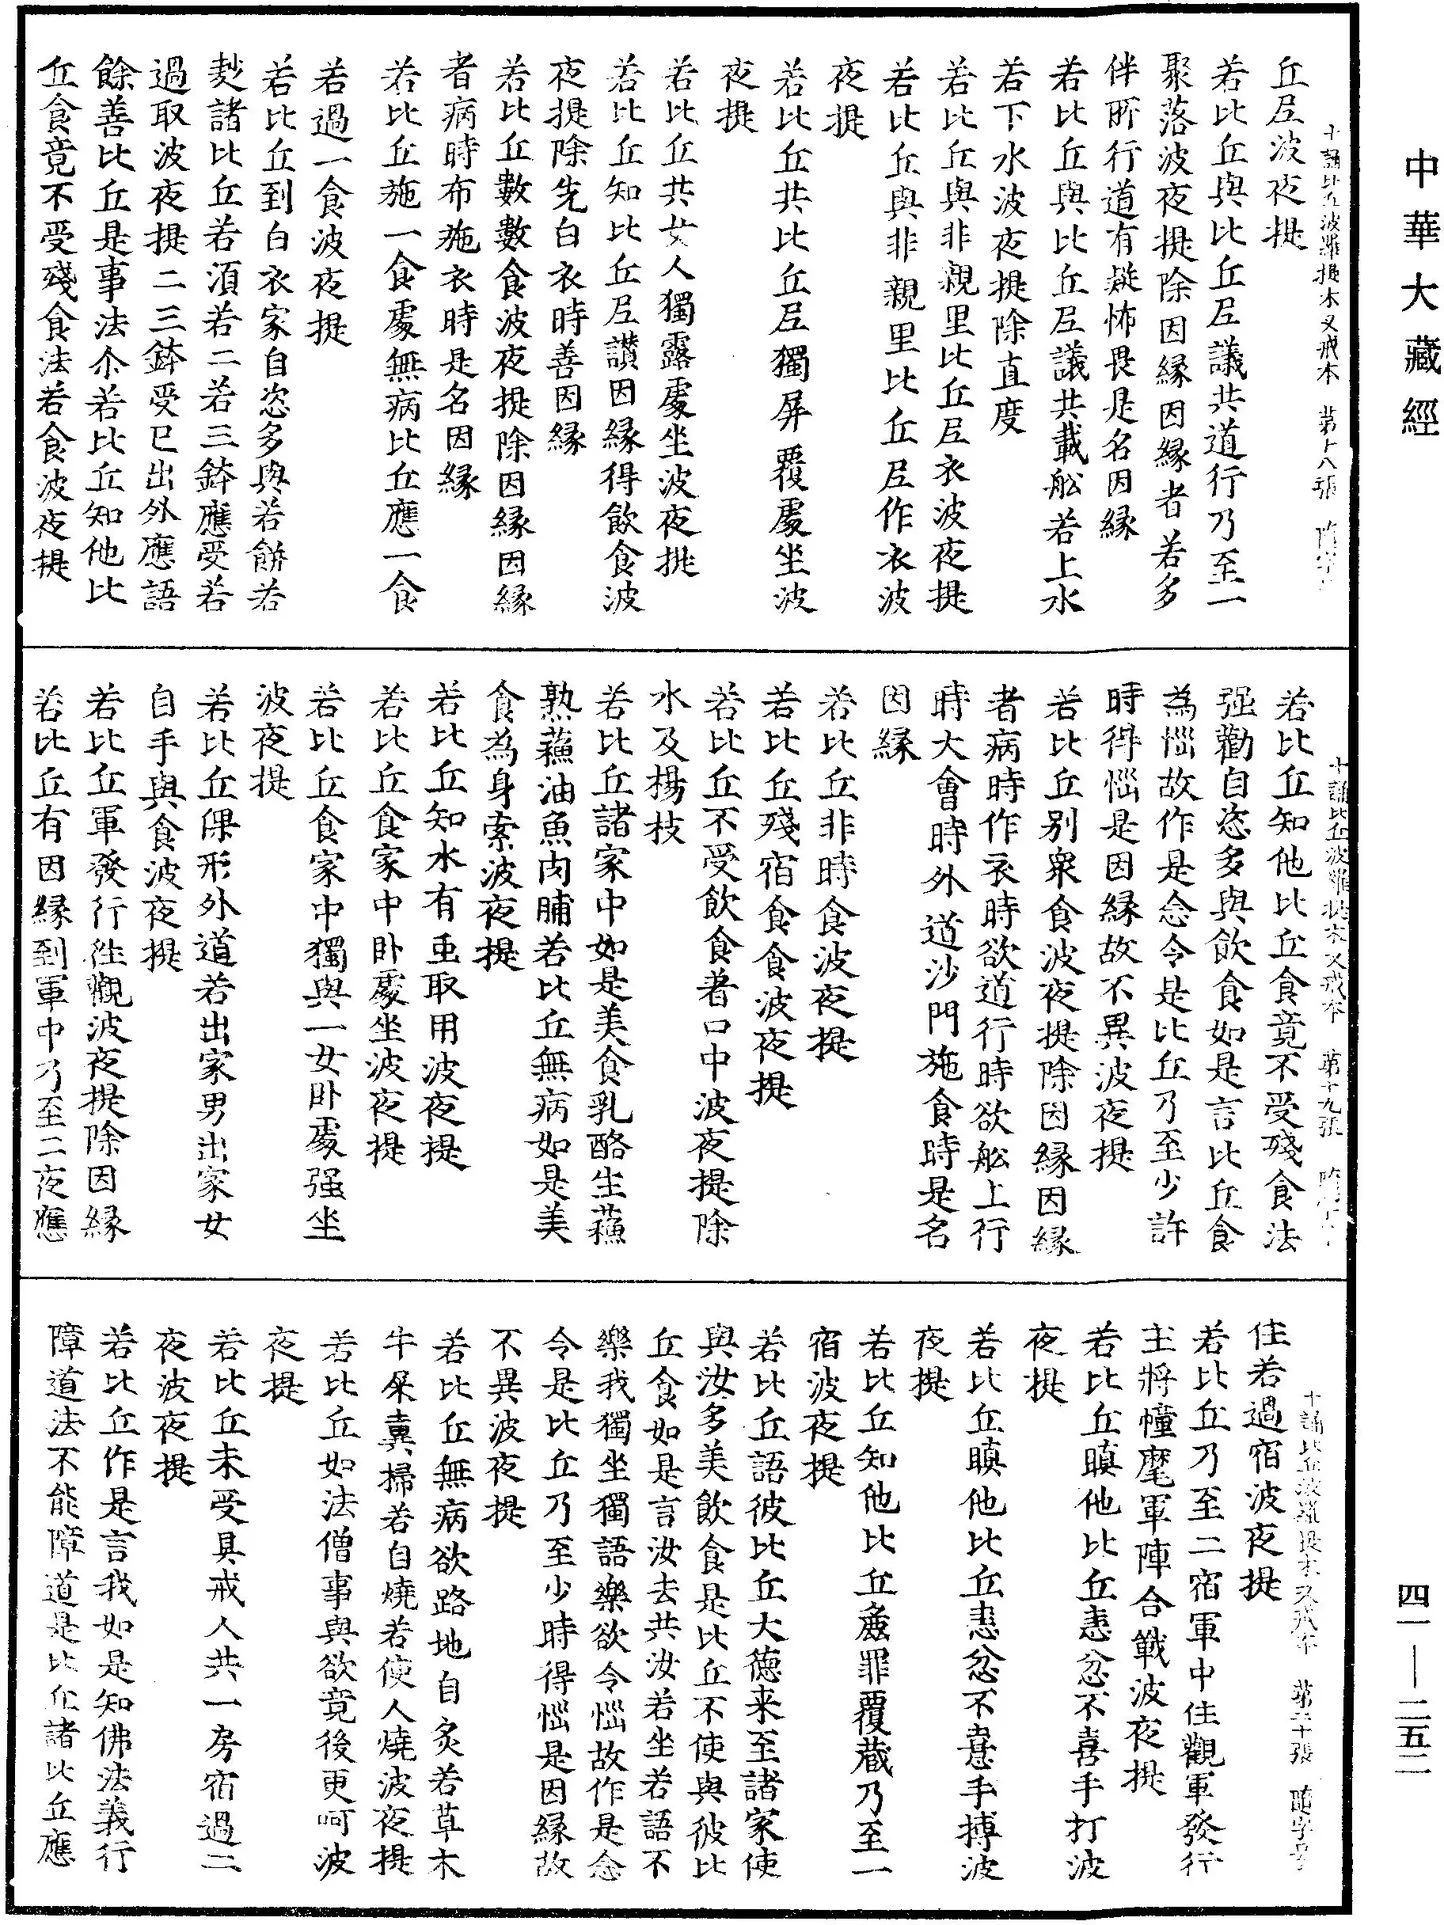 中華大藏經
四一—二五二
十誦比丘波羅提木叉戒本　第十八張　隨字号
丘尼波夜提
若比丘與比丘尼議共道行乃至一
聚落波夜提除因緣因緣者若多
伴所行道有疑怖畏是名因緣
若比丘與比丘尼議共載舩若上水
若下水波夜提除直度
若比丘與非親里比丘尼衣波夜提
若比丘與非親里比丘尼作衣波
夜提
若比丘共比丘尼獨屏覆處坐波
夜提
若比丘共女人獨露處坐波夜提
若比丘知比丘尼讃因緣得飲食波
夜提除先白衣時善因緣
若比丘數數食波夜提除因緣因緣
者病時布施衣時是名因緣
若比丘施一食處無病比丘應一食
若過一食波夜提
若比丘到白衣家自恣多與若餅若
麨諸比丘若須若二若三鉢應受若
過取波夜提二三鉢受已出外應語
餘善比丘是事法尒若比丘知他比
丘食竟不受殘食法若食波夜提
十誦比丘波羅提木叉戒本　第十九張
若比丘知他比丘食竟不受殘食法
强勸自恣多與飲食如是言比丘食
為惱故作是念令是比丘乃至少許
時得惱是因緣故不異波夜提
若比丘別衆食波夜提除因緣因緣
者病時作衣時欲道行時欲舩上行
時大會時外道沙門施食時是名
因緣
若比丘非時食波夜提
若比丘殘宿食食波夜提
若比丘不受飲食著口中波夜提除
水及楊枝
若比丘諸家中如是美食乳酪生蘓
熟蘓油魚肉脯若比丘無病如是美
食為身索波夜提
若比丘知水有虫取用波夜提
若比丘食家中卧處坐波夜提
若比丘食家中獨與一女卧處强坐
波夜提
若比丘倮形外道若出家男出家女
自手與食波夜提
若比丘軍發行往觀波夜提除因緣
若比丘有因緣到軍中乃至二夜應
十誦比丘波羅提木叉戒本　第二十張　隨字号
住若過宿波夜提
若比丘乃至二宿軍中住觀軍發行
主將幢麾軍陣合戰波夜提
若比丘瞋他比丘恚忿不喜手打波
夜提
若比丘瞋他比丘恚忿不憙手搏波
夜提
若比丘知他比丘麁罪覆藏乃至一
宿波夜提
若比丘語彼比丘大德来至諸家使
與汝多美飲食是比丘不使與彼比
丘食如是言汝去共汝若坐若語不
樂我獨坐獨語樂欲令惱故作是念
令是比丘乃至少時得惱是因緣故
不異波夜提
若比丘無病欲路地自炙若草木
牛屎糞掃若自燒若使人燒波夜提
若比丘如法僧事與欲竟後更呵波
夜提
若比丘未受具戒人共一房宿過二
夜波夜提
若比丘作是言我如是知佛法義行
障道法不能障道是比丘諸比丘應